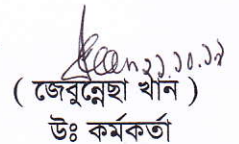 ২১.১০.১৯
( জেবুন্নেছা খান )
উঃ কর্মকর্তা